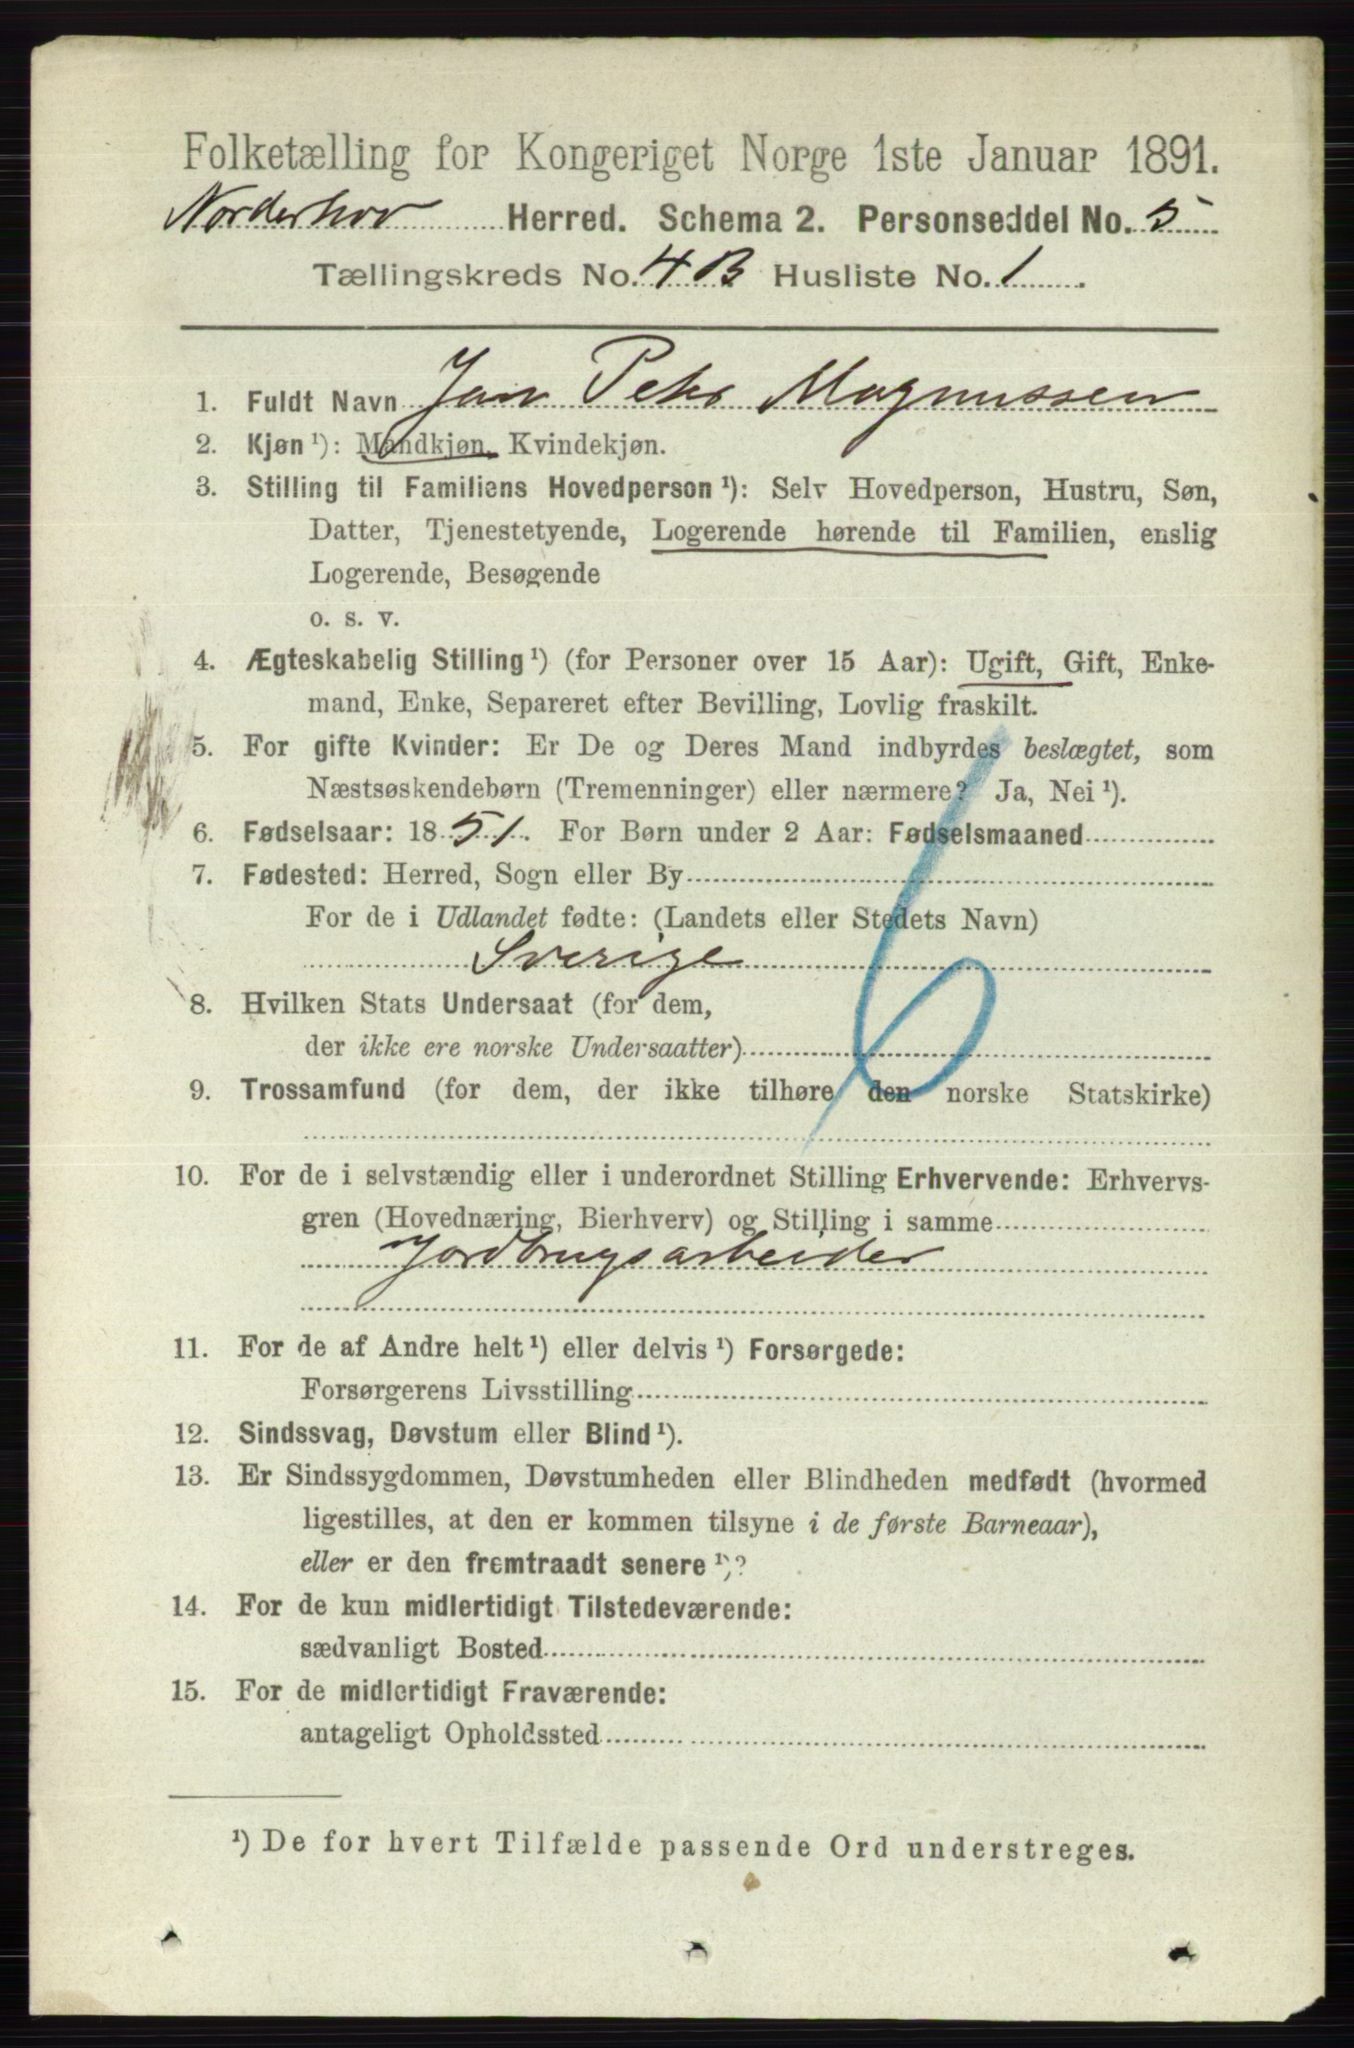 Folketælling for Kongeriget Norge 1ste Januar 1891.
Norderhov Herred. Schema 2. Personseddel No. 5
Tællingskreds No. 4 B Husliste No. 1.
1. Fuldt Navn Jan Peter Magnussen
2. Kjøn¹): Mandkjøn, Kvindekjøn.
3. Stilling til Familiens Hovedperson¹): Selv Hovedperson, Hustru, Søn,
Datter, Tjenestetyende, Logerende hørende til Familien, enslig
Logerende, Besøgende
o. s. v.
4. Ægteskabelig Stilling¹) (for Personer over 15 Aar): Ugift, Gift, Enke-
mand, Enke, Separeret efter Bevilling, Lovlig fraskilt.
5. For gifte Kvinder: Er De og Deres Mand indbyrdes beslægtet, som
Næstsøskendebørn (Tremenninger) eller nærmere? Ja, Nei¹).
6. Fødselsaar: 1851. For Børn under 2 Aar: Fødselsmaaned
7. Fødested: Herred, Sogn eller By
For de i Udlandet fødte: (Landets eller Stedets Navn)
Sverige
8. Hvilken Stats Undersaat (for dem,
der ikke ere norske Undersaatter)
9. Trossamfund (for dem, der ikke tilhøre den norske Statskirke)
10. For de i selvstændig eller i underordnet Stilling Erhvervende: Erhvervs-
gren (Hovednæring, Bierhverv) og Stilling i samme
Jordbrugsarbeider
11. For de af Andre helt¹) eller delvis¹) Forsørgede:
Forsørgerens Livsstilling
12. Sindssvag, Døvstum eller Blind¹).
13. Er Sindssygdommen, Døvstumheden eller Blindheden medfødt (hvormed
ligestilles, at den er kommen tilsyne i de første Barneaar),
eller er den fremtraadt senere¹)?
14. For de kun midlertidigt Tilstedeværende:
sædvanligt Bosted
15. For de midlertidigt Fraværende:
antageligt Opholdssted
¹) De for hvert Tilfælde passende Ord understreges.